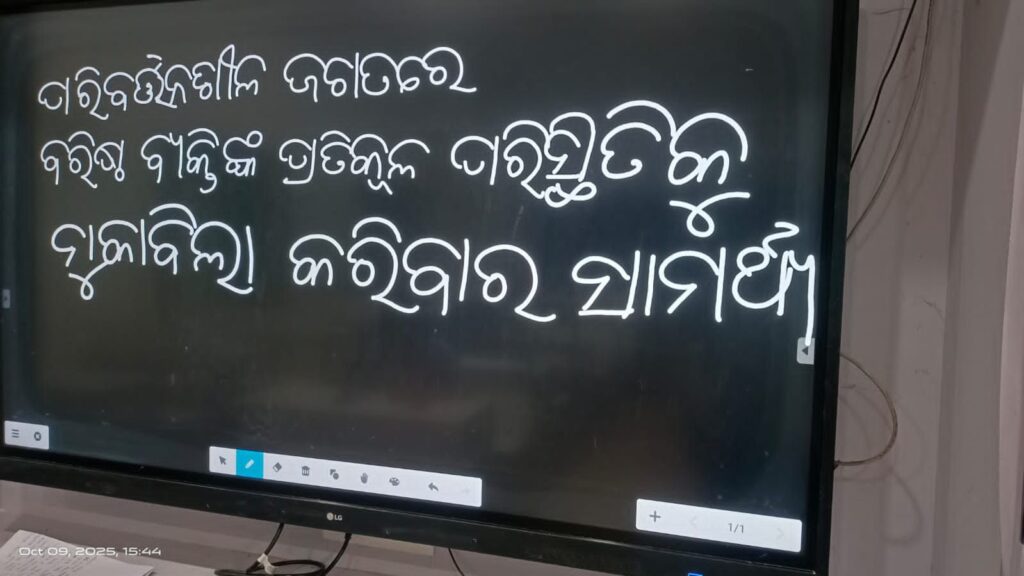 ପରିବର୍ତ୍ତନଶୀଳ ଜଗତରେ
ବରିଷ୍ଠ ବ୍ୟକ୍ତିଙ୍କ ପ୍ରତିକୂଳ ପରିସ୍ଥିତିକୁ
ମୁକାବିଲା କରିବାର ସାମର୍ଥ୍ୟ
1/1
LG
Oct 09, 2025, 15:44